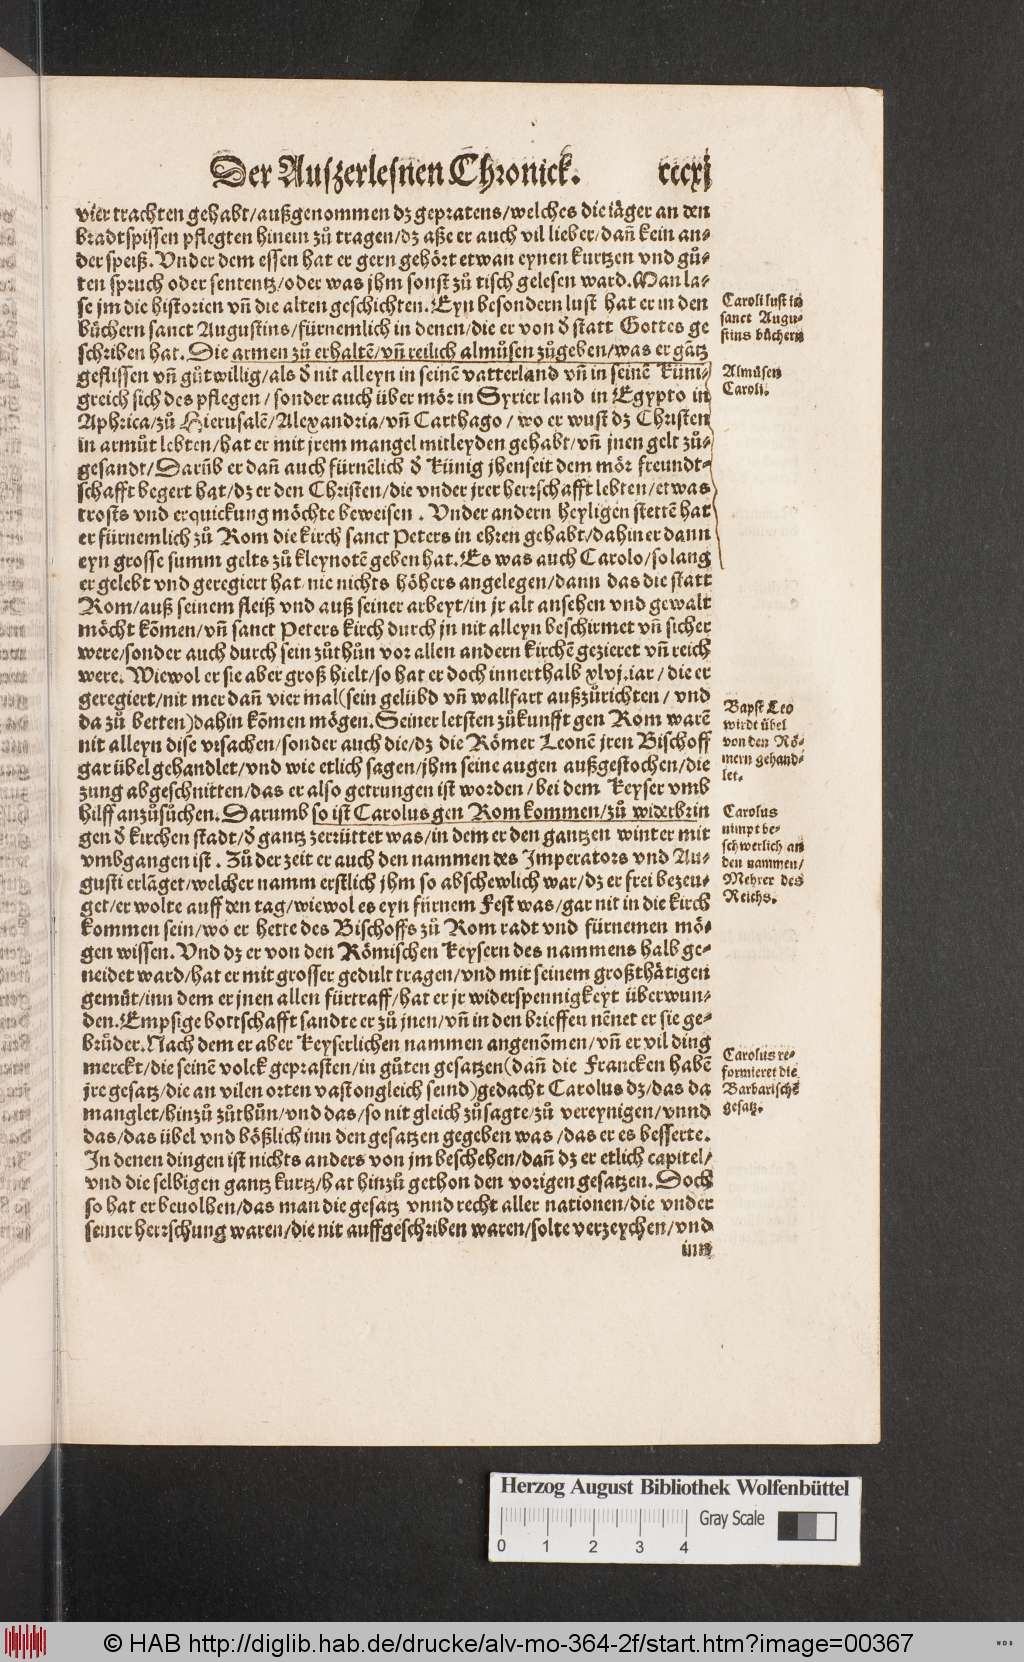 Der Auſzerleſnen Chronick. cccxj
vier trachten gehabt/außgenommen dz gepratens/welches die iäger an den
bradtſpiſſen pflegten hinein zů tragen/dz aße er auch vil lieber/dañ kein an⸗
der ſpeiß. Vnder dem eſſen hat er gern gehört etwan eynen kurtzen vnd gů⸗
ten ſpruch oder ſententz/oder was jhm ſonſt zů tiſch geleſen ward. Man la⸗
ſe jm die hiſtorien vñ die alten geſchichten. Eyn beſondern luſt hat er in den
bůchern ſanct Auguſtins/fürnemlich in denen/die er von d̄ ſtatt Gottes ge
ſchriben hat. Die armen zů erhaltē/vñ reilich almůſen zůgeben/was er gātz
gefliſſen vñ gůtwillig/als d̄ nit alleyn in ſeinē vatterland vñ in ſeinē Küni⸗
greich ſich des pflegen/ſonder auch über mör in Syrier land in Egypto in
Aphrica/zů Hieruſalē/Alexandria/vñ Carthago/wo er wuſt dz Chriſten
in armůt lebten/hat er mit jrem mangel mitleyden gehabt/vñ jnen gelt zů⸗
geſandt/Darūb er dañ auch fürnēlich d̄ Künig jhenſeit dem mör freundt⸗
ſchafft begert hat/dz er den Chriſten/die vnder jrer herrſchafft lebten/etwas
troſts vnd erquickung möchte beweiſen. Vnder andern heyligen ſtettē hat
er fürnemlich zů Rom die kirch ſanct Peters in ehren gehabt/dahin er dann
eyn groſſe ſumm gelts zů kleynotē geben hat. Es was auch Carolo/ſo lang
er gelebt vnd geregiert hat nie nichts höhers angelegen/dann das die ſtatt
Rom/auß ſeinem fleiß vnd auß ſeiner arbeyt/in jr alt anſehen vnd gewalt
möcht kōmen/vñ ſanct Peters kirch durch jn nit alleyn beſchirmet vñ ſicher
were/ſonder auch durch ſein zůthůn vor allen andern kirchē gezieret vñ reich
were. Wiewol er ſie aber groß hielt/ſo hat er doch innerthalb xlvj. iar/die er
geregiert/nit mer dañ vier mal(ſein gelübd vñ wallfart außzůrichten/vnd
da zů betten)dahin kōmen mögen. Seiner letſten zůkunfft gen Rom warē
nit alleyn diſe vrſachen/ſonder auch die/dz die Römer Leonē jren Biſchoff
gar übel gehandlet/vnd wie etlich ſagen/jhm ſeine augen außgeſtochen/die
zung abgeſchnitten/das er alſo getrungen iſt worden/bei dem Keyſer vmb
hilff anzůſůchen. Darumb ſo iſt Carolus gen Rom kommen/zů widerbrin
gen d̄ kirchen ſtadt/d̄ gantz zerrüttet was/in dem er den gantzen winter mit
vmbgangen iſt. Zů der zeit er auch den nammen des Imperators vnd Au⸗
guſti erlāget/welcher namm erſtlich jhm ſo abſchewlich war/dz er frei bezeu⸗
get/er wolte auff den tag/wiewol es eyn fürnem Feſt was/gar nit in die kirch
kommen ſein/wo er hette des Biſchoffs zů Rom radt vnd fürnemen mö⸗
gen wiſſen. Vnd dz er von den Römiſchen Keyſern des nammens halb ge⸗
neidet ward/hat er mit groſſer gedult tragen/vnd mit ſeinem großthätigen
gemůt/inn dem er jnen allen fürtraff/hat er jr widerſpennigkeyt überwun⸗
den. Empſige bottſchafft ſandte er zů jnen/vñ in den brieffen nēnet er ſie ge⸗
brůder. Nach dem er aber Keyſerlichen nammen angenōmen/vñ er vil ding
merckt/die ſeinē volck gepraſten/in gůten geſatzen(dañ die Francken habē
jre geſatz/die an vilen orten vaſt ongleich ſeind)gedacht Carolus dz/das da
manglet/hinzů zůthůn/vnd das/ſo nit gleich zůſagte/zů vereynigen/vnnd
das/das übel vnd bößlich inn den geſatzen gegeben was/das er es beſſerte.
In denen dingen iſt nichts anders von jm beſchehen/dañ dz er etlich capitel/
vnd die ſelbigen gantz kurtz/hat hinzů gethon den vorigen geſatzen. Doch
ſo hat er beuolhen/das man die geſatz vnnd recht aller nationen/die vnder
ſeiner herrſchung waren/die nit auffgeſchriben waren/ſolte verzeychen/vnd
inn
Caroli luſt in
ſanct Augu⸗
ſtins bůchern
Almůſen
Caroli.
Bapſt Leo
wirdt übel
von den Rö⸗
mern gehand⸗
let.
Carolus
nimpt be⸗
ſchwerlich an
den nammen/
Mehrer des
Reichs.
Carolus re⸗
formieret die
Barbariſchē
geſatz.
Herzog August Bibliothek Wolfenbüttel
Gray Scale
0 1 2 3 4
© HAB http://diglib.hab.de/drucke/alv-mo-364-2f/start.htm?image=00367